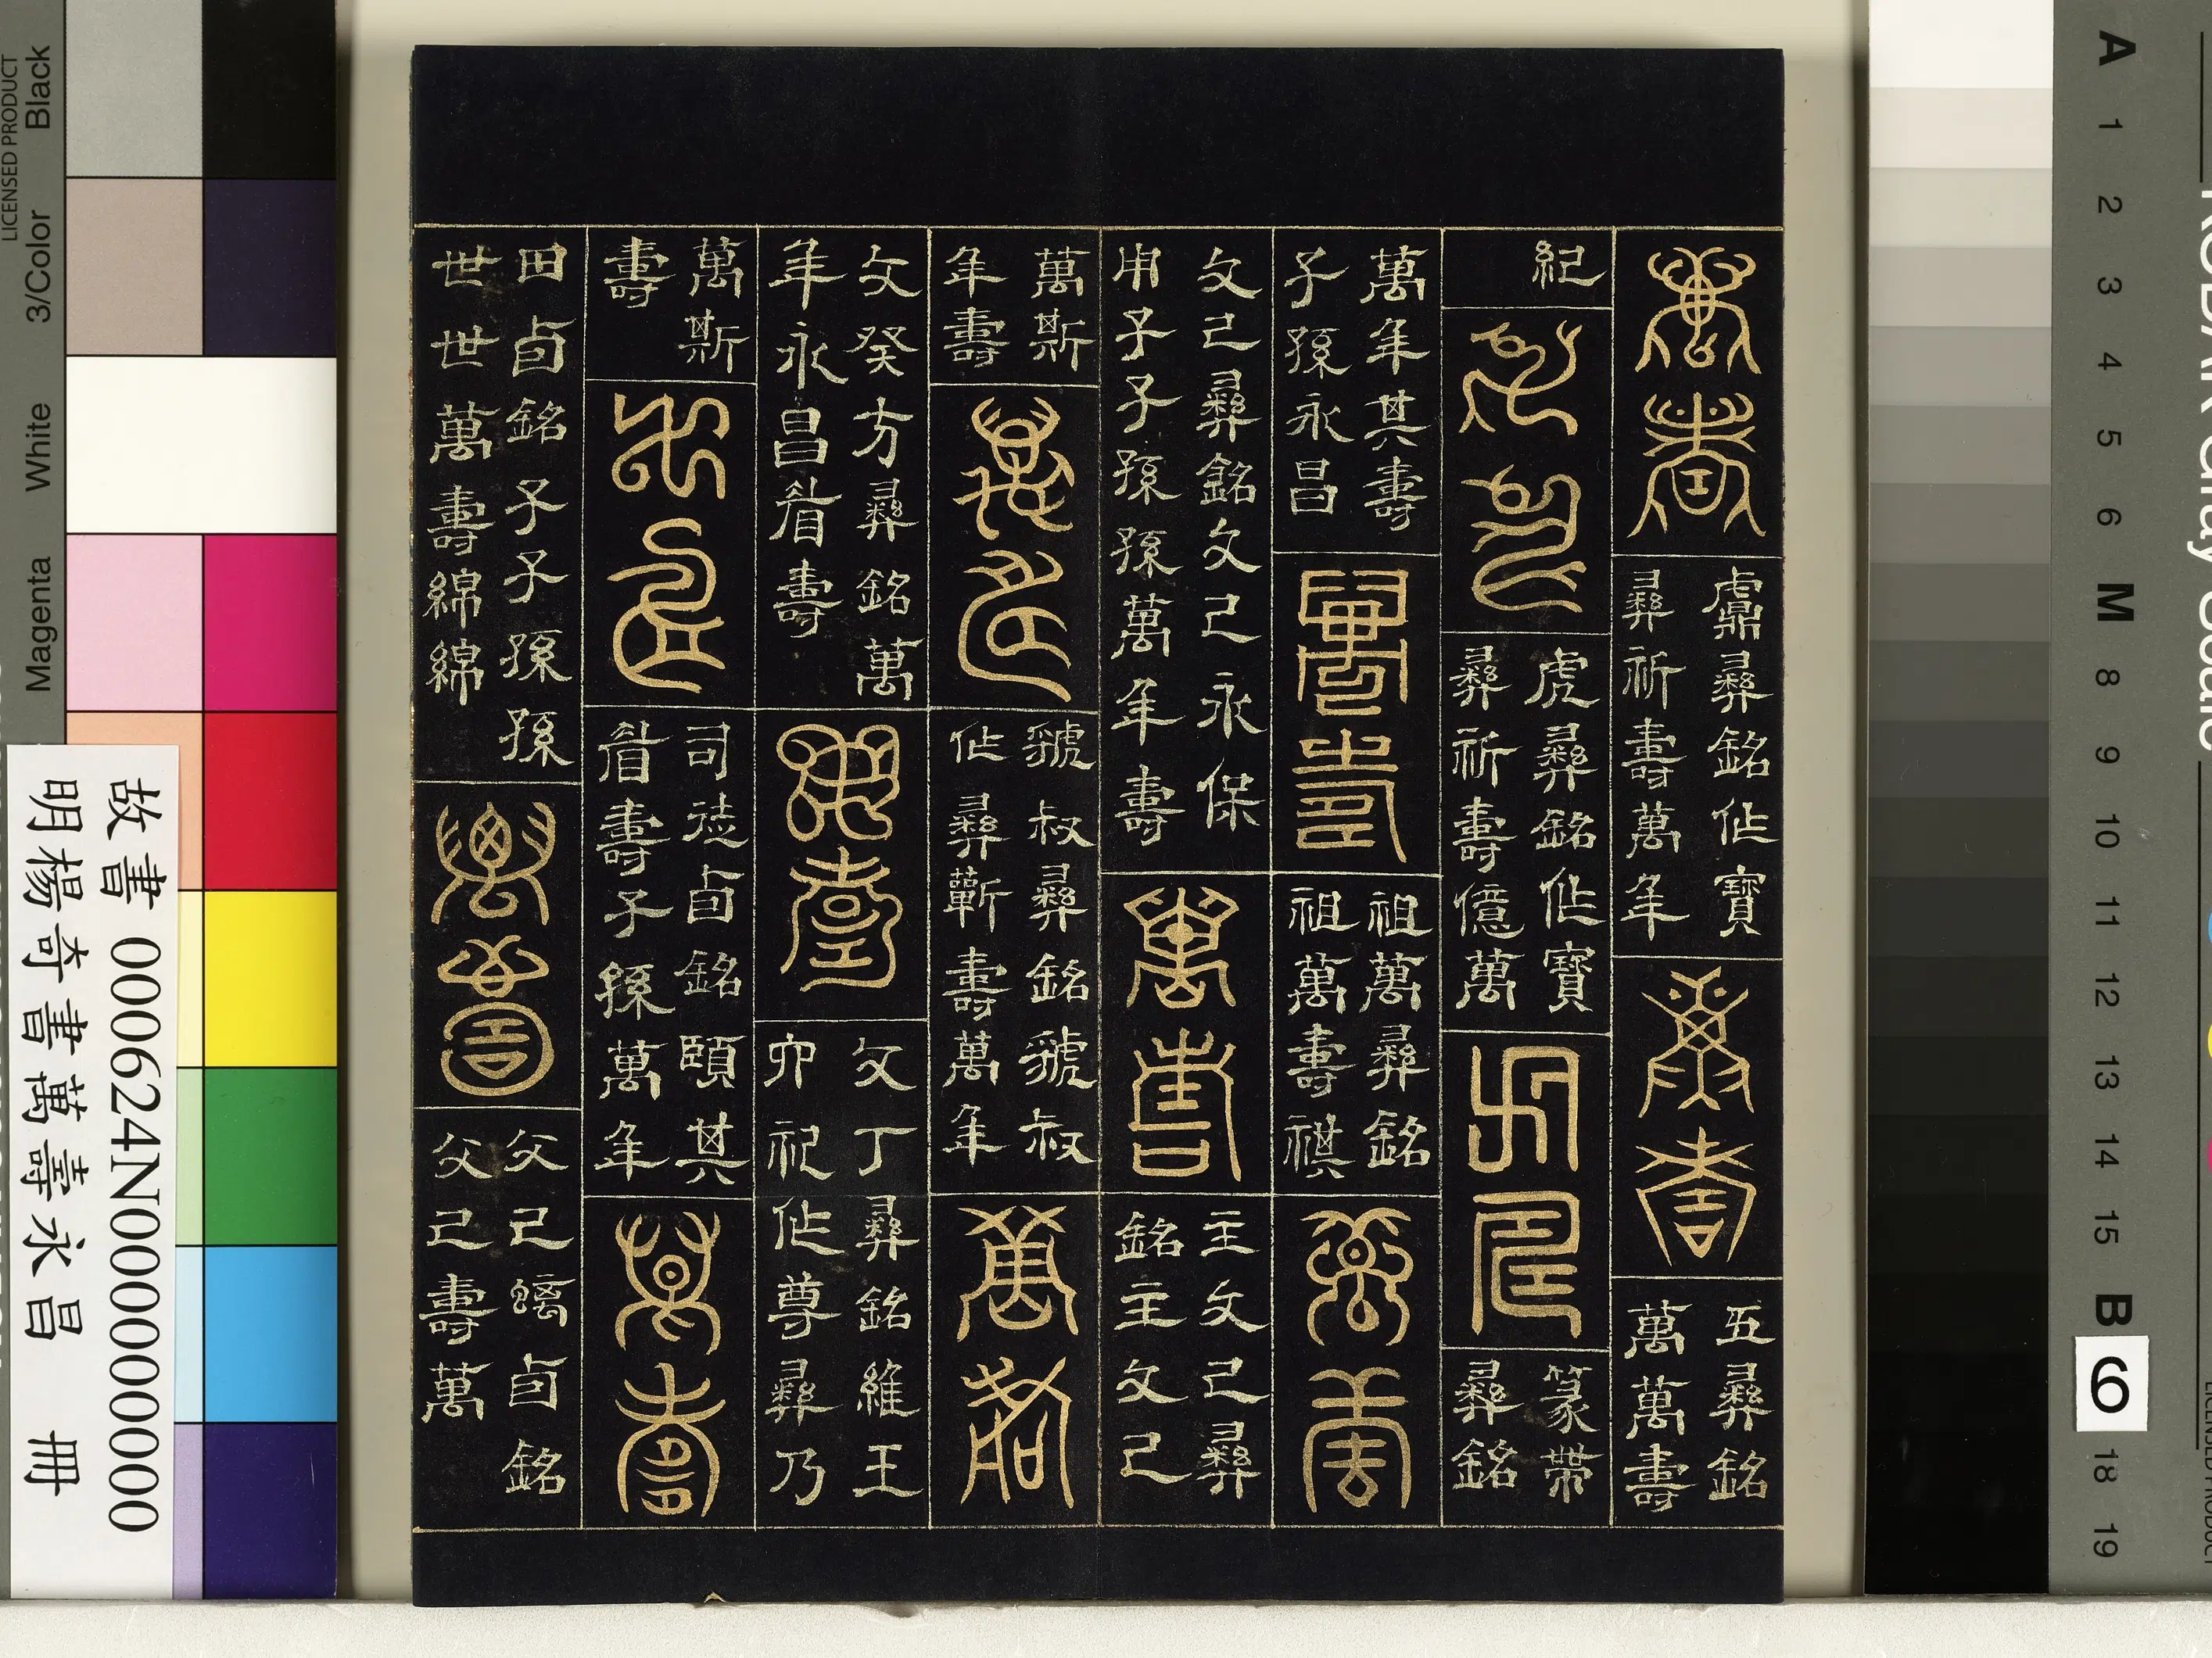 萬壽
彝銘作寶
彝祈壽萬年
萬壽
五彝銘
萬萬壽
紀
萬壽
虎彝銘作寶
彝祈壽億萬
萬壽
篆帶
彝銘
萬年其壽
子孫永昌
萬壽
祖萬彝銘
祖萬壽祺
萬壽
文己彝銘文己永保
用子子孫孫萬年壽
萬壽
主文己彝
銘主文己
萬斯
年壽
萬壽
虢叔彝銘虢叔
作彝蘄壽萬年
萬壽
文癸方彝銘萬
年永昌眉壽
萬壽
文丁彝銘維王
卯祀作尊彝乃
萬斯
壽
萬壽
司徒卣銘頤其
眉壽子孫萬年
萬壽
田卣銘子子孫孫
世世萬壽綿綿
萬壽
父己螭卣銘
父己壽萬
故書 000624N000000000
明楊奇書萬壽永昌 冊
LICENSED PRODUCT
Black
3/Color
White
Magenta
A 1 2 3 4 5 6 M 8 9 10 11 12 13 14 15 B 6 18 19